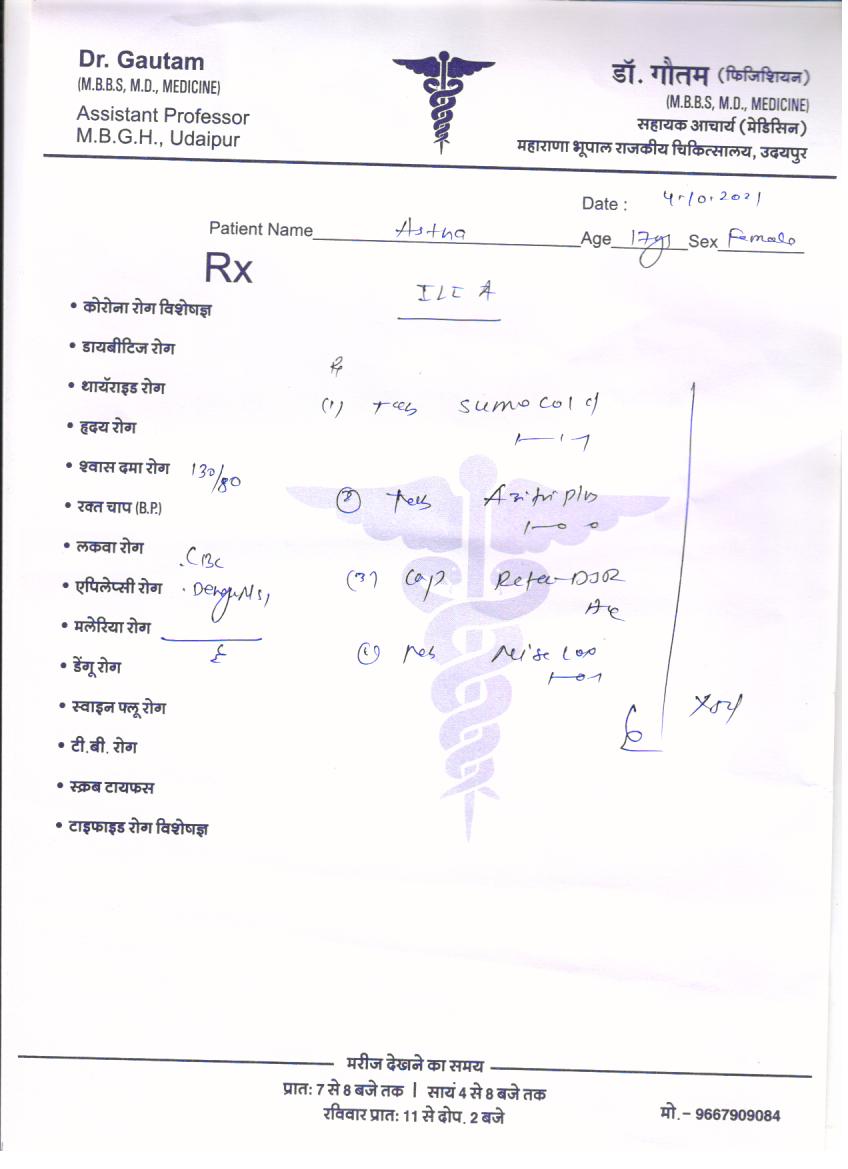 Dr. Gautam
(M.B.B.S, M.D., MEDICINE)
Assistant Professor
M.B.G.H., Udaipur
डॉ. गौतम (फिजिशियन)
(M.B.B.S, M.D., MEDICINE)
सहायक आचार्य (मेडिसिन)
महाराणा भूपाल राजकीय चिकित्सालय, उदयपुर
Date : 4.10.2021
Patient Name Astha Age 17 Sex Female
Rx
• कोरोना रोग विशेषज्ञ
• डायबीटिज रोग
• थायॅराइड रोग
• हृदय रोग
• श्वास दमा रोग 130/80
• रक्त चाप (B.P.)
• लकवा रोग
• एपिलेप्सी रोग
• मलेरिया रोग
• डेंगू रोग
• स्वाइन फ्लू रोग
• टी.बी. रोग
• स्क्रब टायफस
• टाइफाइड रोग विशेषज्ञ
. CBC
(1) Tab Sumocold
1—1—1
(2) Tab
1—0 0
(3) Cap
Tab
1—0—1
मरीज देखने का समय
प्रात: 7 से 8 बजे तक | सायं 4 से 8 बजे तक
रविवार प्रात: 11 से दोप. 2 बजे
मो.- 9667909084